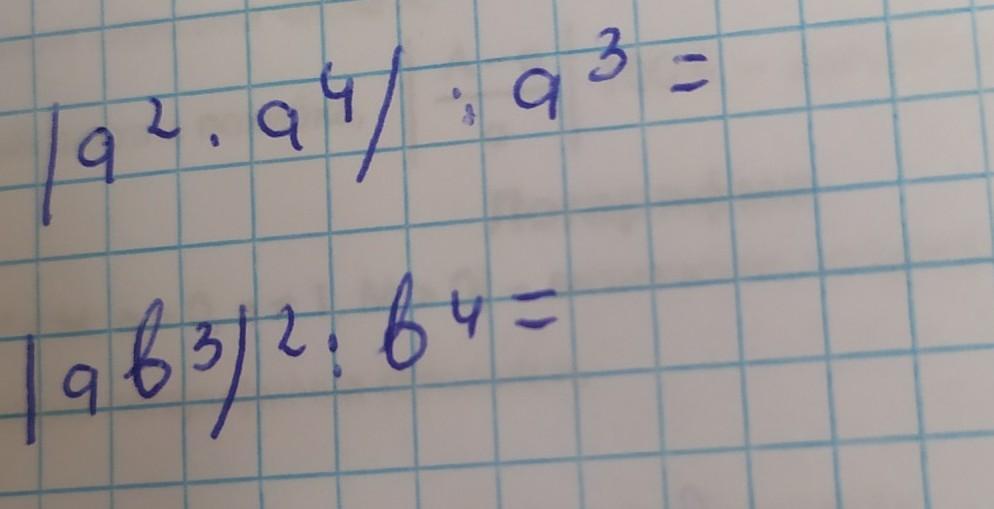 |a² · a⁴| : a³ =
|ab³|² : b⁴ =